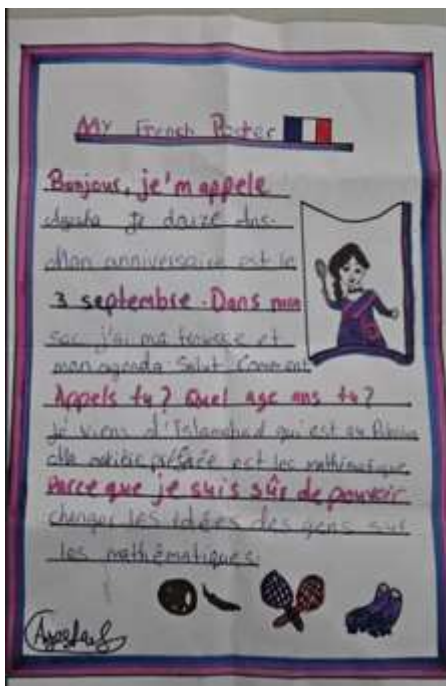 My French Poster
Bonjour, je'm appele
Ayesha je douze ans.
Mon anniversaire est le
3 septembre. Dans mon
sac j'ai ma trousse et
mon agenda Salut Comment
Appels tu? Quel age ans tu?
Je viens d'Islamabad qui est au
Ma matière préfáée est les mathématique
Parce que je suis sûr de pouvoir
changer les idées des gens sur
les mathématiques.